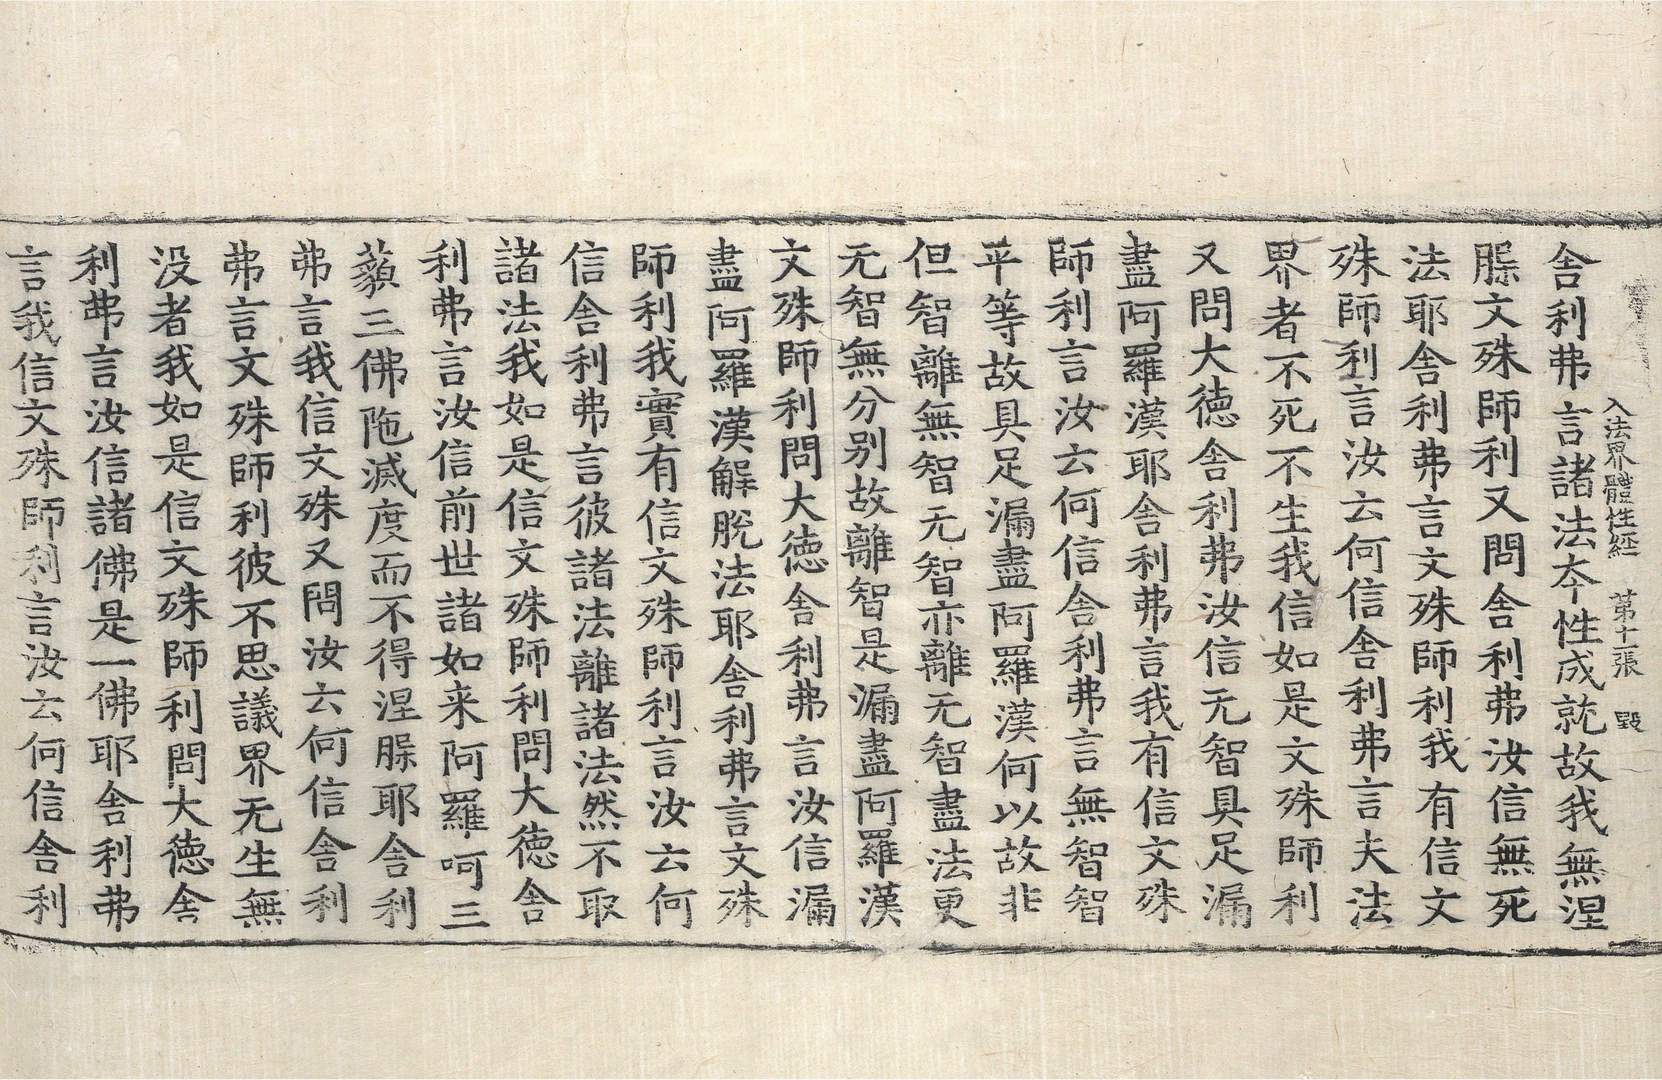 入法界體性經　第十一張　毀
舍利弗言諸法夲性成就故我無涅
槃文殊師利又問舍利弗汝信無死
法耶舍利弗言文殊師利我有信文
殊師利言汝云何信舍利弗言夫法
界者不死不生我信如是文殊師利
又問大德舍利弗汝信无智具足漏
盡阿羅漢耶舍利弗言我有信文殊
師利言汝云何信舍利弗言無智智
平等故具足漏盡阿羅漢何以故非
但智離無智无智亦離无智盡法更
无智無分別故離智是漏盡阿羅漢
文殊師利問大德舍利弗言汝信漏
盡阿羅漢解脫法耶舍利弗言文殊
師利我實有信文殊師利言汝云何
信舍利弗言彼諸法離諸法然不取
諸法我如是信文殊師利問大德舍
利弗言汝信前世諸如来阿羅呵三
藐三佛陁滅度而不得涅槃耶舍利
弗言我信文殊又問汝云何信舍利
弗言文殊師利彼不思議界无生無
没者我如是信文殊師利問大德舍
利弗言汝信諸佛是一佛耶舍利弗
言我信文殊師利言汝云何信舍利